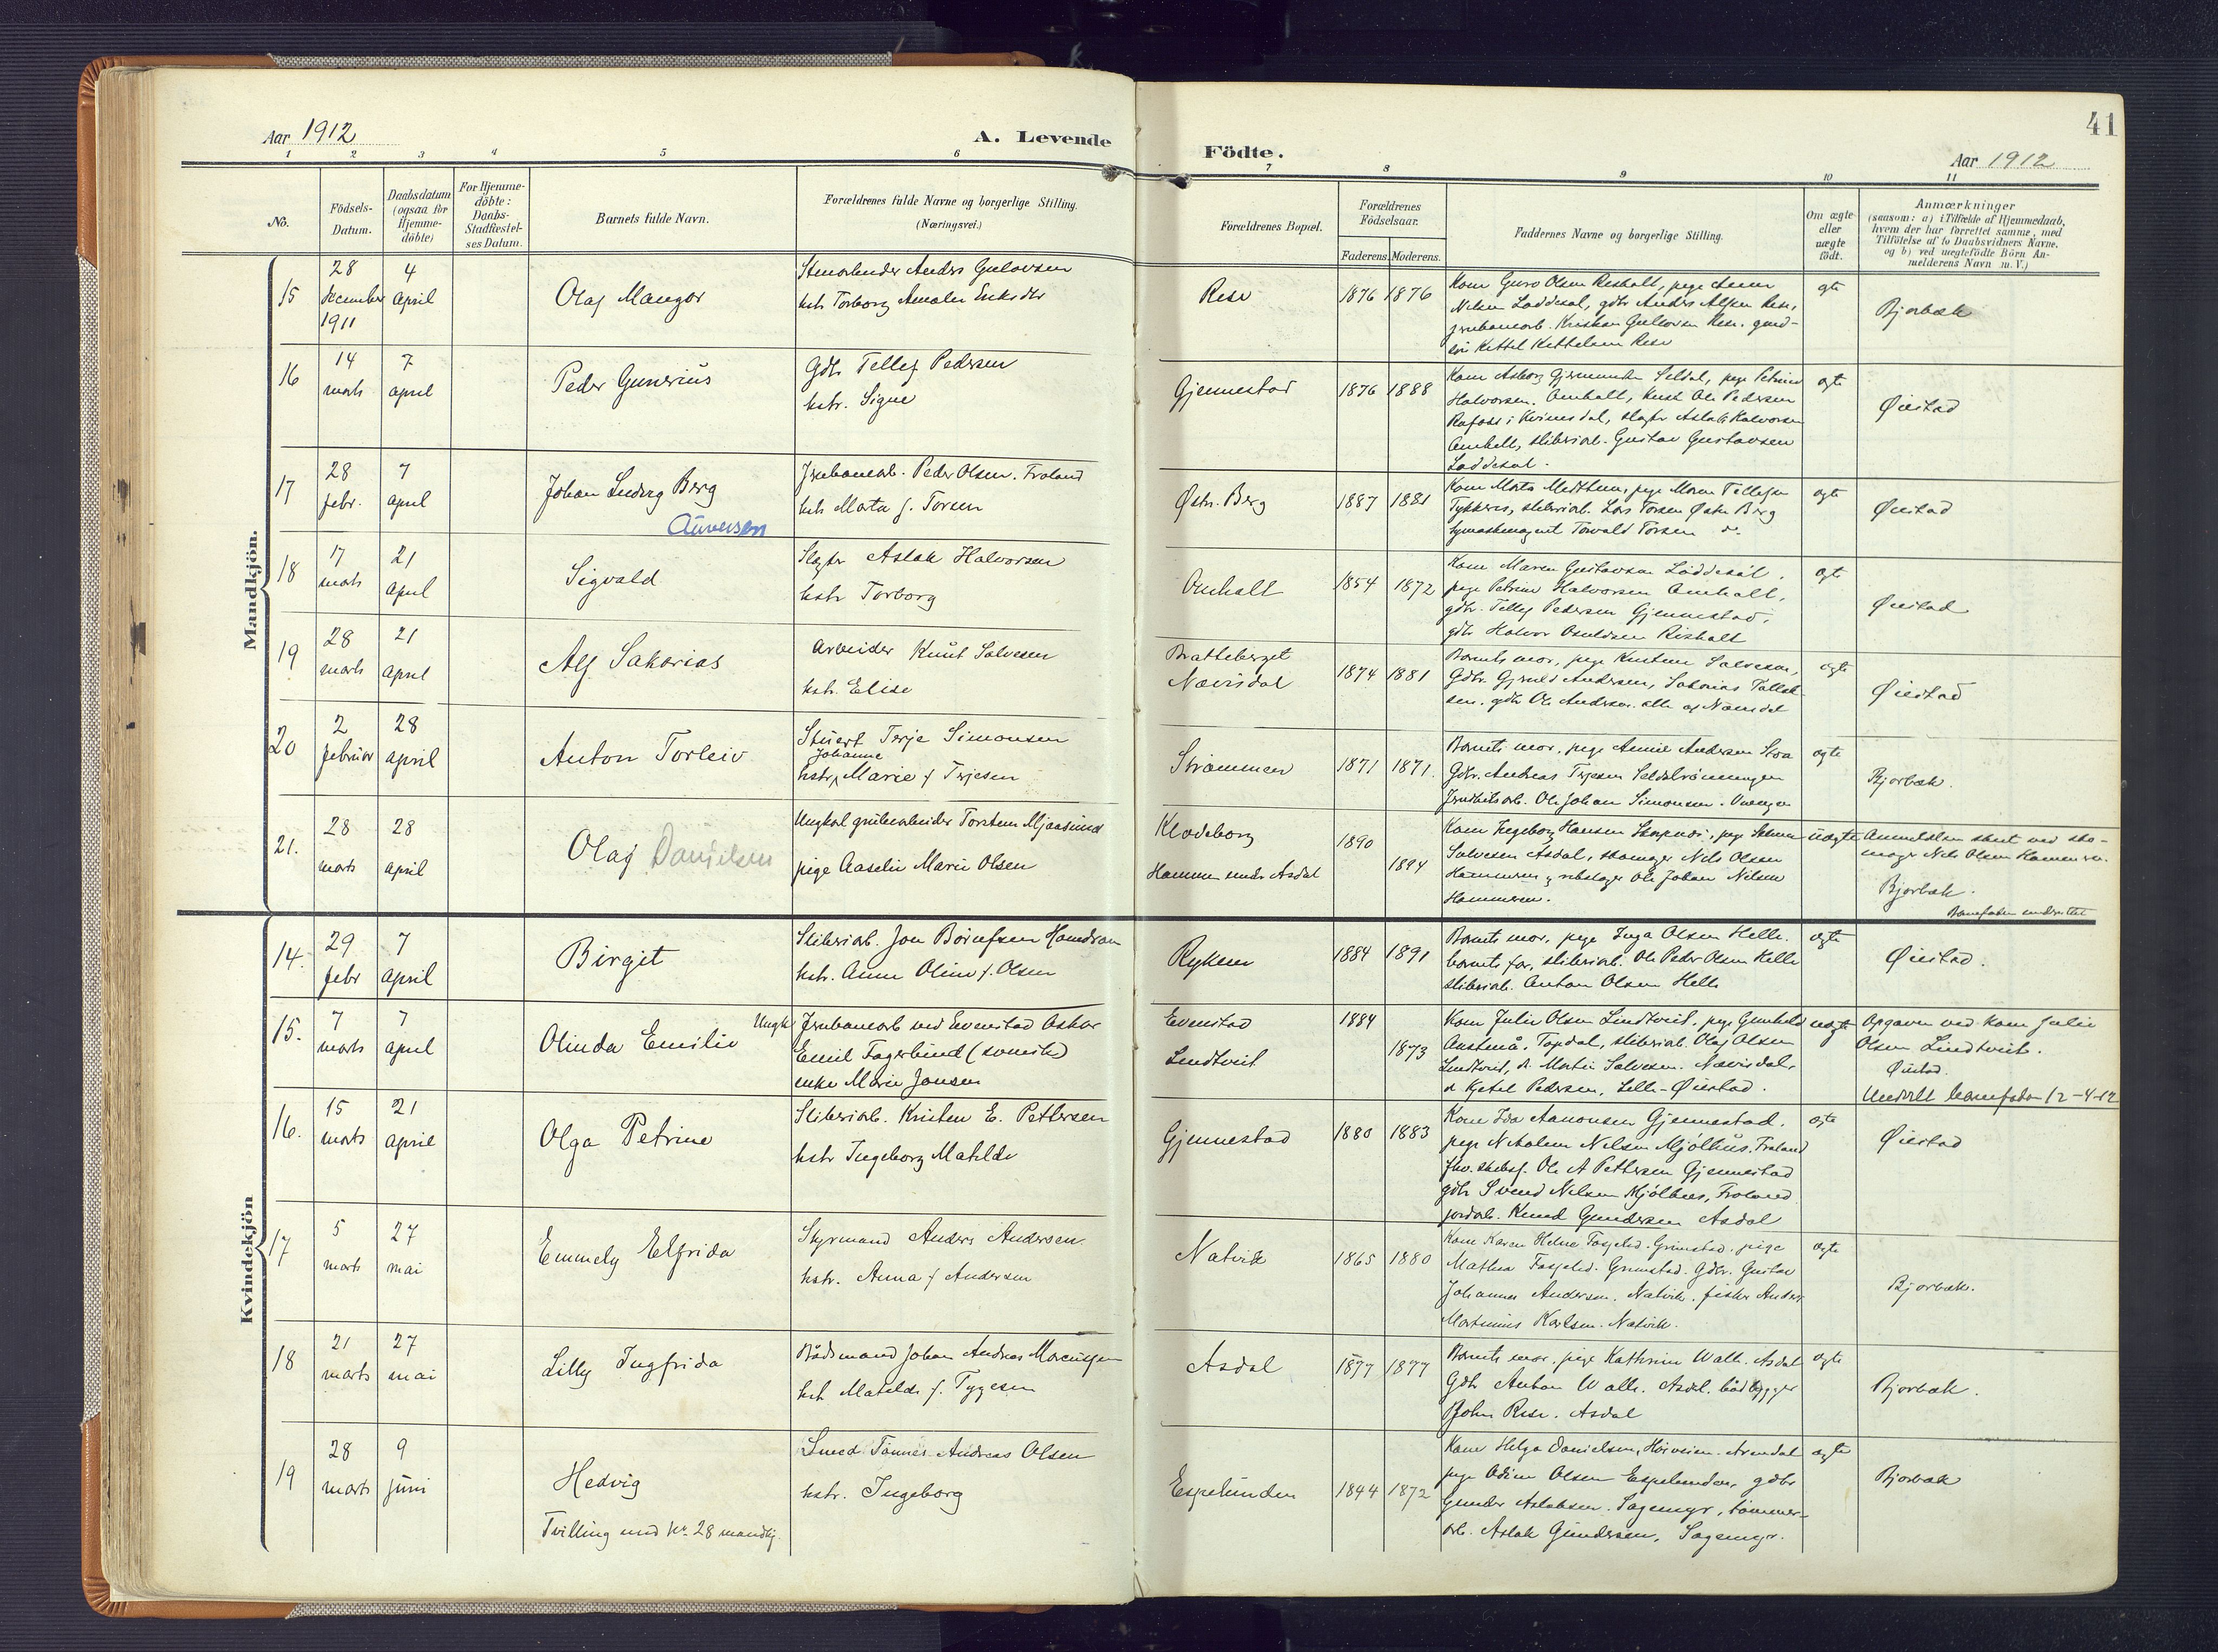 Aar 1912
A. Levende
Födte.
41
Aar 1912
1 2 3 4 5 6 7 8 9 10 11
No.
Födsels-
Datum.
Daabsdatum
(ogsaa for
Hjemme-
döbte)
For Hjemme-
döbte:
Daabs-
Stadfæstel-
ses Datum.
Barnets fulde Navn.
Forældrenes fulde Navne og borgerlige Stilling.
(Næringsvei.)
Forældrenes Bopæl.
Forældrenes
Födselsaar.
Faderens. Moderens.
Faddernes Navne og borgerlige Stilling.
Om ægte
eller
uægte
födt.
Anmærkninger
(saasom: a) i Tilfælde af Hjemmedaab,
hvem der har forrettet samme, med
Tilföielse af to Daabsvidners Navne,
og b) ved uægtefödte Börn An-
melderens Navn m. V.)
Mandkjön.
15
28
december
1911
4
april
Olaf Mangor
Anders Gulovsen
hstr Torborg Amalie
Rise
1876 1876
Kone Guro Olsen Rishalt, pige
Nilsen Løddesøl, gdbr Anders Alfsen Rise,
jernbanearb. Kristian Gullovsen Rise.
Kittel Kittelsen Rise
Bjorbæk
16
14
marts
7
april
Peder Gunerius
Gdbr Tellef Pedersen
hstr. Signe
Gjennestad
1876 1888
Kone Asborg Gjermundsen Seldal, pige Petrine
Halvorsen. Omholt, Ole Pedersen
Rafoss i Kvinesdal, slagtr Aslak Halvorsen
Omholt, sliberiarb. Gustav Gustavsen
Løddesøl.
ægte
Øiestad
17
28
febr.
7
april
Johan Ludvig Berg
Auversen
Jernbanearb. Peder Olsen. Froland
hstr Marta f. Torsen
Østr. Berg
1887 1881
Kone Marta pige Maren Tellefsen
sliberiarb. Lars Torsen Østre Berg
Torvald Torsen do.
ægte
Øiestad
18
17
marts
21
april
Sigvald
Slagtr Aslak Halvorsen
hstr Torborg
Omholt
1854 1872
Kone Maren Gustavsen Løddesøl.
pige Petrine Halvorsen Omholt,
gdbr. Tellef Pedersen Gjennestad,
gdbr Halvor Rishalt
ægte
Øiestad
19
28
marts
21
april
Alf Sakarias
Arbeider Knut Salvesen
hstr. Elise
Bratteberget
Nævisdal
1874 1881
Barnets mor, pige Kirstine Salvesen,
Gdbr. Andersen, Sakarias
gdbr Ole Andersen. alle af Nævisdal
ægte
Øiestad
20
2
februar
28
april
Anton Torleiv
Stuert Terje Simonsen
Johanne
hstr Marie f Terjesen
Strømmen
1871 1871.
Barnets mor, pige Annie Andersen
Gdbr. Andreas Terjesen
Ole Johan Simonsen.
ægte
Bjorbæk.
21.
28
marts
28
april
Olaf Danielsen
Ungkarl grubearbeider Torstein Mjaasund
pige Aaselie Marie Olsen
Klodeborg
Hammeren under Asdal
1890
1894
Kone Ingeborg Hansen pige
Salvesen Asdal, skomager Nils Olsen
Hammeren og rebslager Ole Johan Nilsen
Hammeren.
uægte
Anmeldelsen skeet ved sko-
mager Nils Olsen Hammeren.
Bjorbæk.
Barnefaderen underrettet
Kvindekjön
14.
29
febr
7
april
Birgit
Sliberiarb. Jon
hstr. Anne Oline f. Olsen
Rykene
1884 1891
Barnets mor, pige Inga Olsen Helle.
barnets far, sliberiarb. Ole Peder Olsen Helle
sliberiarb. Anton Olsen Helle
ægte
Øiestad.
15.
7
marts
7
april
Olinda Emilie
Ungk. Jernbanearb ved Evenstad Oskar
Emil Fagerlund (svensk)
enke Marie Jonsen
Evenstad
Lindtveit
1884
1873
Kone Julie Olsen Lindtveit. pige Gunhild
Austenå. Topdal, sliberiarb. Olaf Olsen
Lindtveit, do. Martin Salvesen. Nævisdal,
do Kjetel Pedersen, Lille-Øiestad.
uægte
Opgaven ved kone Julie
Olsen Lindtveit.
Øiestad.
Underrett. barnefader 12-4-12
16.
15
marts
21
april
Olga Petrine
Sliberiarb. Kristen E. Pettersen
hstr Ingeborg Matilde
Gjennestad
1880 1883
Kone Ida Aanonsen Gjennestad.
pige Nilsen Mjølhus, Froland
Ole A Pettersen Gjennestad
gdbr Svend Nilsen Mjølhus, Froland
jordarb. Knud Gundersen Asdal
ægte
Øiestad
17
5
marts
27
mai
Emmely Elfrida
Styrmand Anders Andersen.
hstr. Anna f Andersen
Natvik
1865 1880
Kone Karen Grimstad. pige
Mathea Grimstad. Gdbr. Gustav
Johannes Andersen. Natvik. fisker Anders
Martinius Karlsen. Natvik.
ægte
Bjorbæk.
18
21
marts
27
mai
Lilly Ingfrida
Bådsmand Johan Andreas Marcussen
hstr Matilde f. Tygesen
Asdal
1877 1877
Barnets mor. pige Kathrine Walle. Asdal
Gdbr Anton Walle. Asdal. bådbygger
John Rise. Asdal
ægte
Bjorbæk.
19
28
marts
9
juni
Hedvig
Tvilling med Nr. 28 mandkj.
Smed Tønnes Andreas Olsen
hstr. Ingeborg
Espelunden
1844 1872
Kone Helga Danielsen, Arendal
pige Odine Olsen Espelunden, gdbr
Gunder Aslaksen. Sagemyr, tømmer-
arb. Aslak Gundersen, Sagemyr.
ægte
Bjorbæk